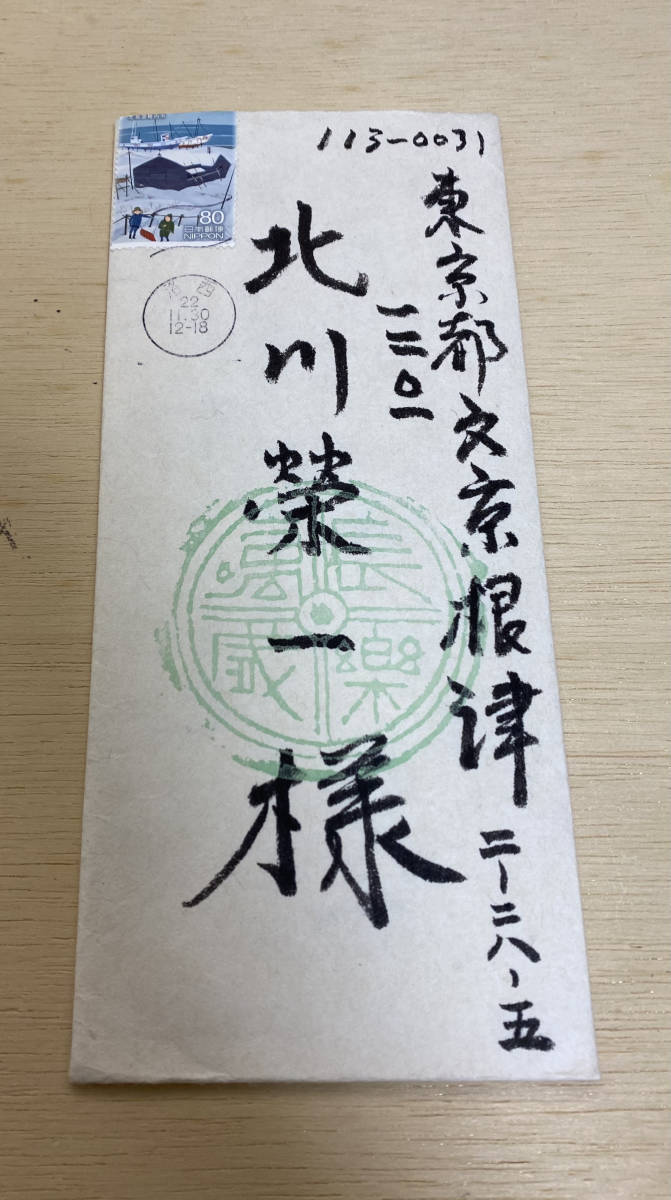 113-0031
東京都文京根津二-二八-五
一三〇一
北川榮一様
80
日本郵便
NIPPON
洛西
22
11.30
12-18
長樂